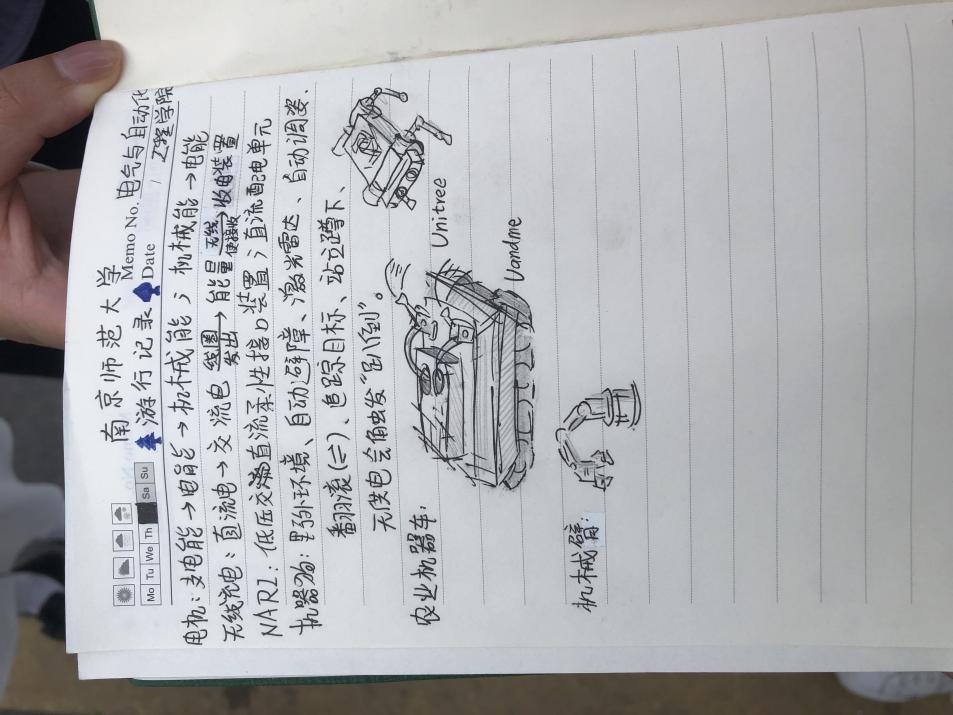 南京师范大学
游行记录
Memo No. 电气与自动化工程学院
Mo Tu We Th Sa Su
Date / /
电机：电能→电能→机械能；机械能→电能
无线充电：直流电→交流电 线圈发出→能量 无线使接收→收电装置
NARI：低压交直流柔性接口装置；直流配电单元
机器狗：野外环境、自动避障、激光雷达、自动调姿、
翻滚(=)、追踪目标、站立蹲下、
无供电会触发“趴倒”。
Unitree
农业机器车：
Vandme
机械臂：